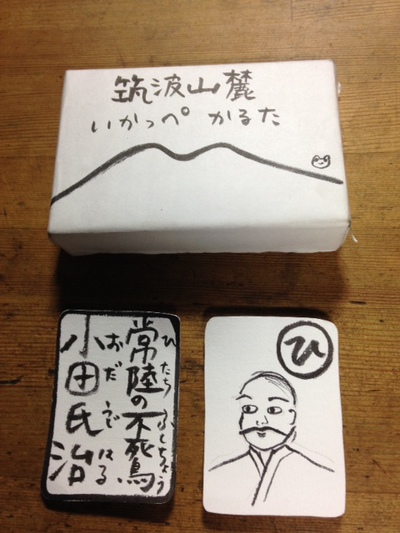 筑波山麓
いかっぺ かるた
常陸の不死鳥
ひたち ふしちょう
小田氏治
おだ うじ はる
ひ